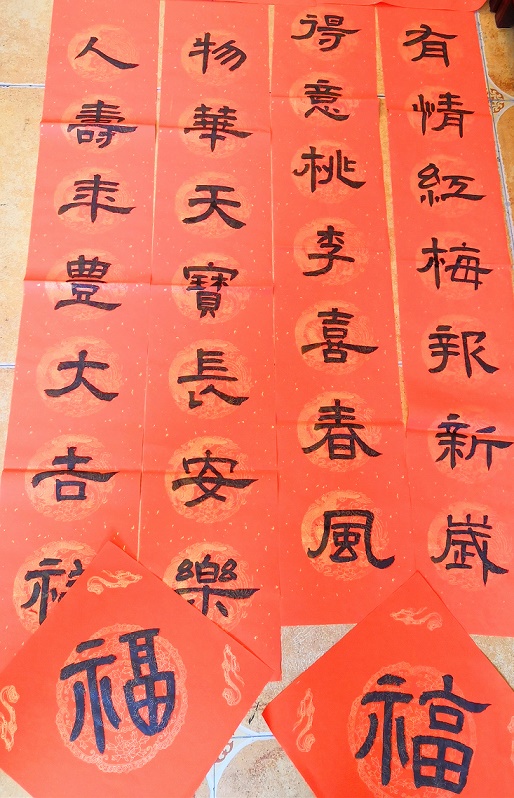 有情紅梅報新歲
得意桃李喜春風
物華天寶長安樂
人壽年豊大吉
福
福